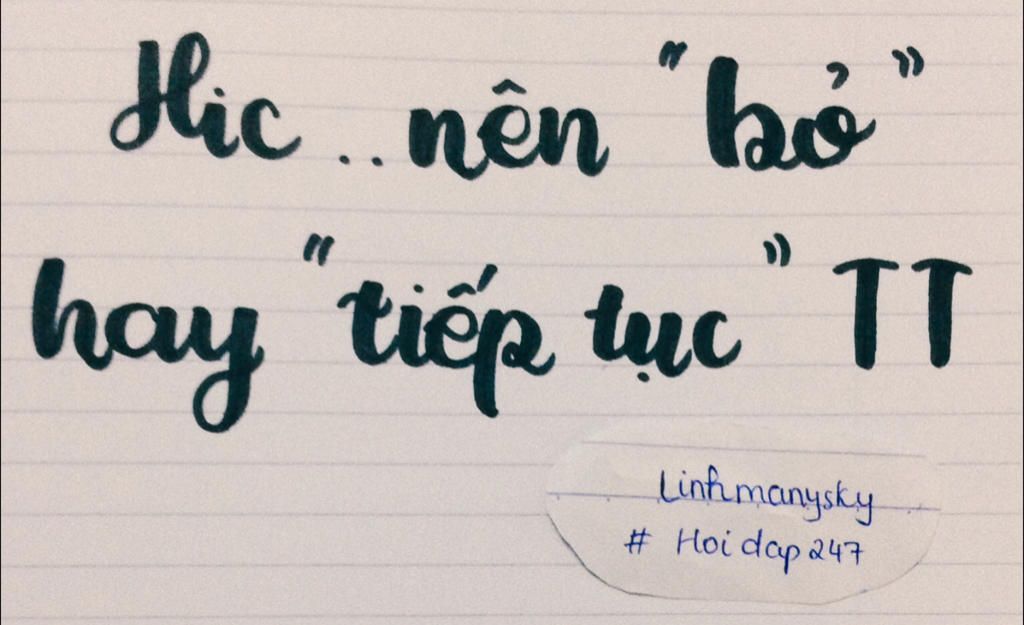 Hic .. nên "bỏ"
hay "tiếp tục" TT
Linhmanysky
# Hoidap247